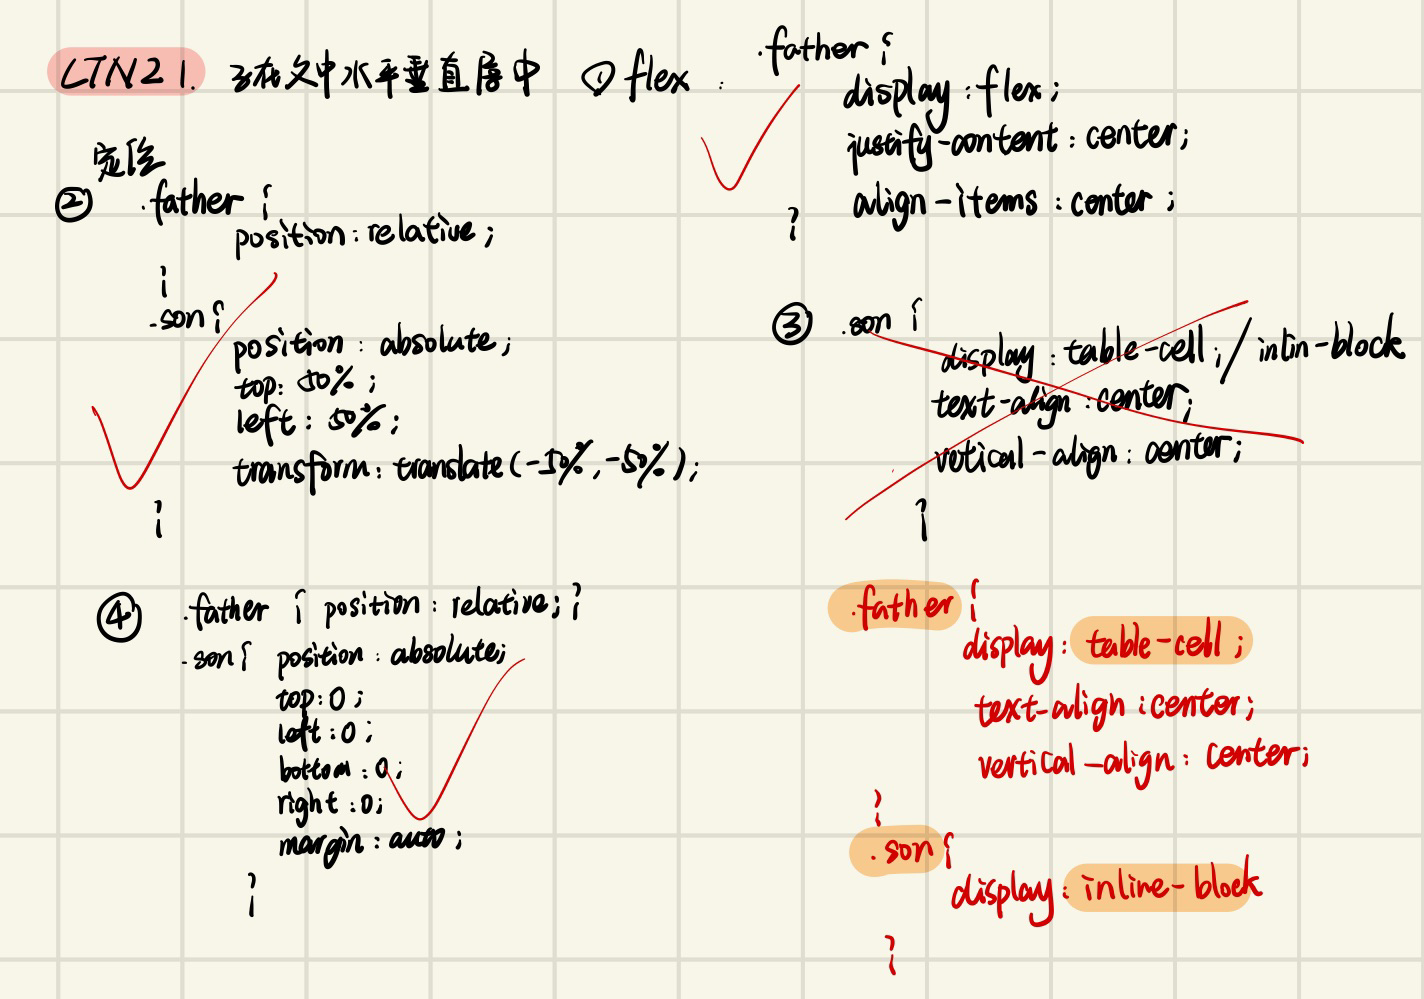 LTN21. 子在父中水平垂直居中 ① flex :
.father {
display : flex ;
justify-content : center ;
align-items : center ;
}
定位
② .father {
position : relative ;
}
.son {
position : absolute ;
top: 50% ;
left : 50% ;
transform : translate(-50%, -50%) ;
}
③ .son {
display : table-cell ; / inlin-block
text-align : center ;
vetical-align : center ;
}
.father {
display : table-cell ;
text-align : center ;
vertical-align : center ;
}
.son {
display : inline-block
}
④ .father { position : relative ; }
.son { position : absolute ;
top : 0 ;
left : 0 ;
bottom : 0 ;
right : 0 ;
margin : auto ;
}